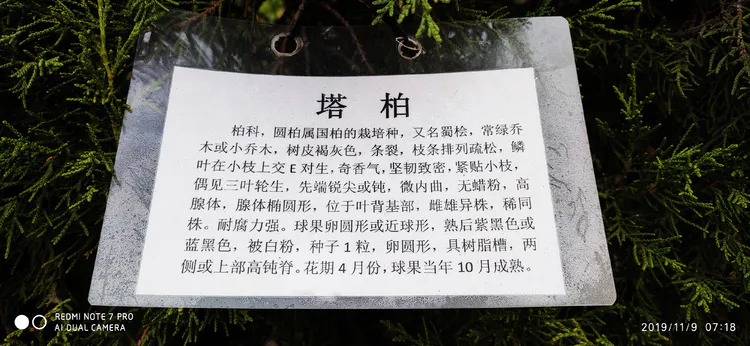 塔 柏
柏科，圆柏属国柏的栽培种，又名蜀桧，常绿乔
木或小乔木，树皮褐灰色，条裂，枝条排列疏松，鳞
叶在小枝上交 E 对生，奇香气，坚韧致密，紧贴小枝，
偶见三叶轮生，先端锐尖或钝，微内曲，无蜡粉，高
腺体，腺体椭圆形，位于叶背基部，雌雄异株，稀同
株。耐腐力强。球果卵圆形或近球形，熟后紫黑色或
蓝黑色，被白粉，种子 1 粒，卵圆形，具树脂槽，两
侧或上部高钝脊。花期 4 月份，球果当年 10 月成熟。
REDMI NOTE 7 PRO
AI DUAL CAMERA
2019/11/9 07:18